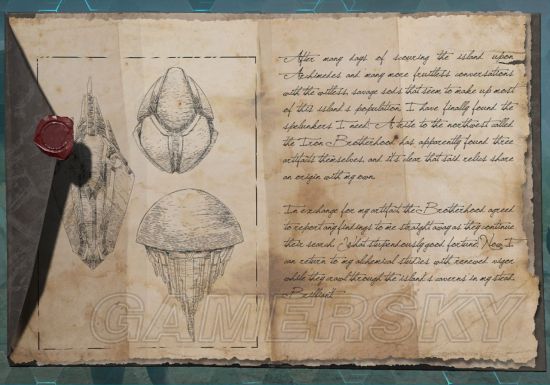 After many days of scouring the island upon
Archimedes and many more fruitless conversations
with the witless, savage sods that seem to make up most
of this island's population, I have finally found the
spelunkers I need. A tribe to the northwest called
the Iron Brotherhood has apparently found three
artifacts themselves, and it's clear that said relics share
an origin with my own.
In exchange for my artifact the Brotherhood agreed
to report any findings to me straight away as they continue
their search. What stupendously good fortune! Now, I
can return to my alchemical studies with renewed vigor
while they crawl through the island's caverns in my stead.
Brilliant
GAMERSKY